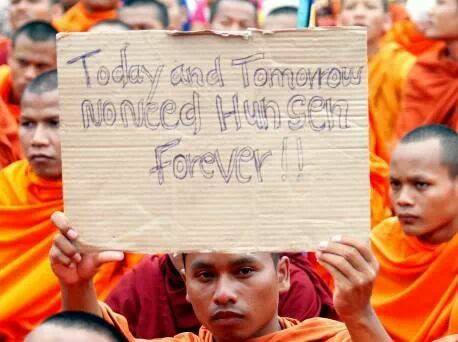 Today and Tomorrow
No Need Hun sen
Forever!!